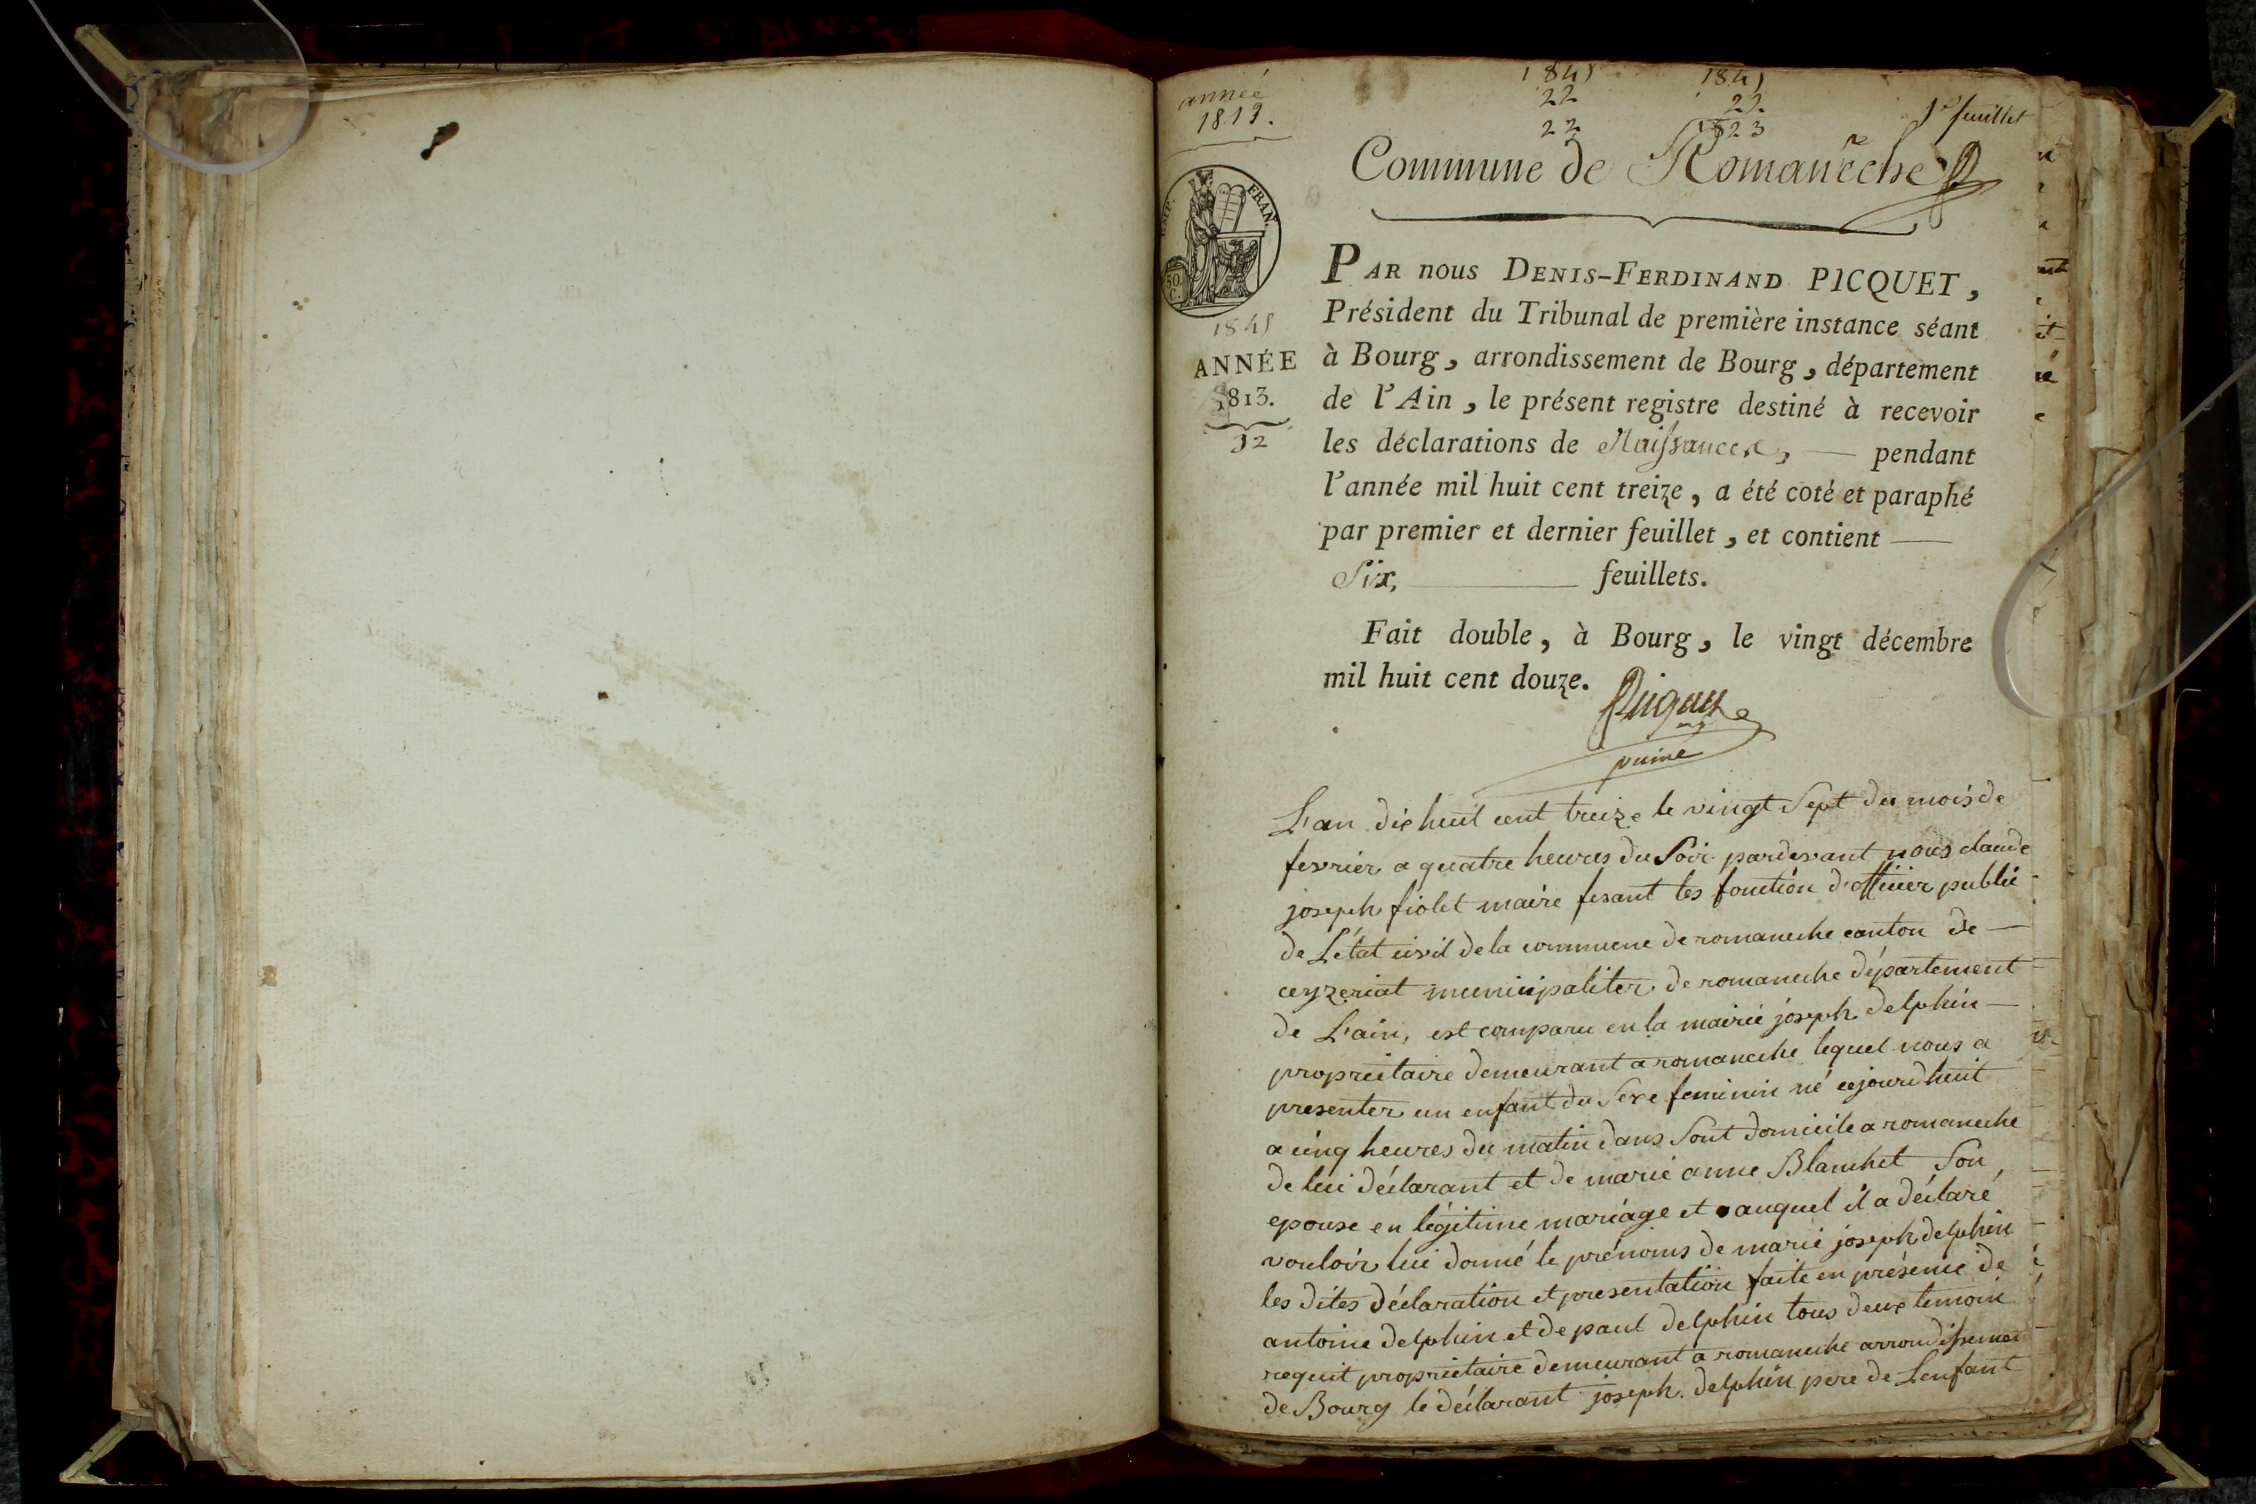 année
1813.
1841
22
22
1841
22
1823
1er feuillet
Commune de Romanêche
EMP. FRAN.
50 C.
1841
ANNÉE
1813.
12
PAR nous DENIS-FERDINAND PICQUET,
Président du Tribunal de première instance séant
à Bourg, arrondissement de Bourg, département
de l'Ain, le présent registre destiné à recevoir
les déclarations de Naissances, — pendant
l'année mil huit cent treize, a été coté et paraphé
par premier et dernier feuillet, et contient —
Six, — feuillets.
Fait double, à Bourg, le vingt décembre
mil huit cent douze.
Picquet
L'an dix huit cent treize le vingt Sept du mois de
fevrier a quatre heures du Soir pardevant nous claude
joseph fiolet maire fesant les fonction d'officier public
de L'état civil de la commune de romaneche canton de —
ceyzeriat municipaliter de romaneche département
de L'ain, est comparu en la mairie joseph delphin —
proprietaire demeurant a romaneche lequel nous a
presenter un enfant du Sexe feminin né cejourdhuit
a cinq heures du matin dans Sont domicile a romaneche
de lui déclarant et de marie anne Blanchet Son
epouse en légitime mariage et auquel il a déclaré
vouloir lui donné le prénoms de marie joseph delphin
les dites déclaration et presentation faite en présence de
antoine delphin et de paul delphin tous deux temoin
requit proprietaire demeurant a romaneche arrondissement
de Bourg le déclarant joseph delphin pere de Lenfant